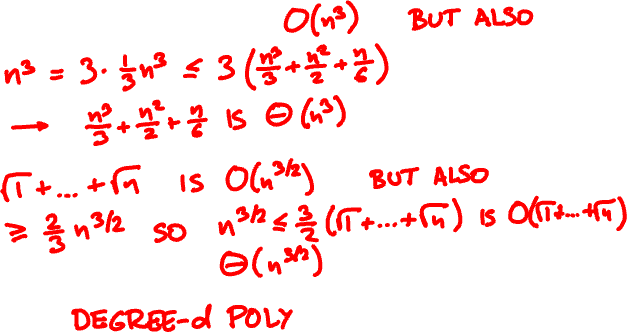 O(n³) BUT ALSO
n³ = 3 · 1/3 n³ ≤ 3 (n³/3 + n²/2 + n/6)
→ n³/3 + n²/2 + n/6 IS Θ(n³)
√1 + ... + √n IS O(n^3/2) BUT ALSO
≥ 2/3 n^3/2 SO n^3/2 ≤ 3/2 (√1 + ... + √n) IS O(√1 + ... + √n)
Θ(n^3/2)
DEGREE-d POLY